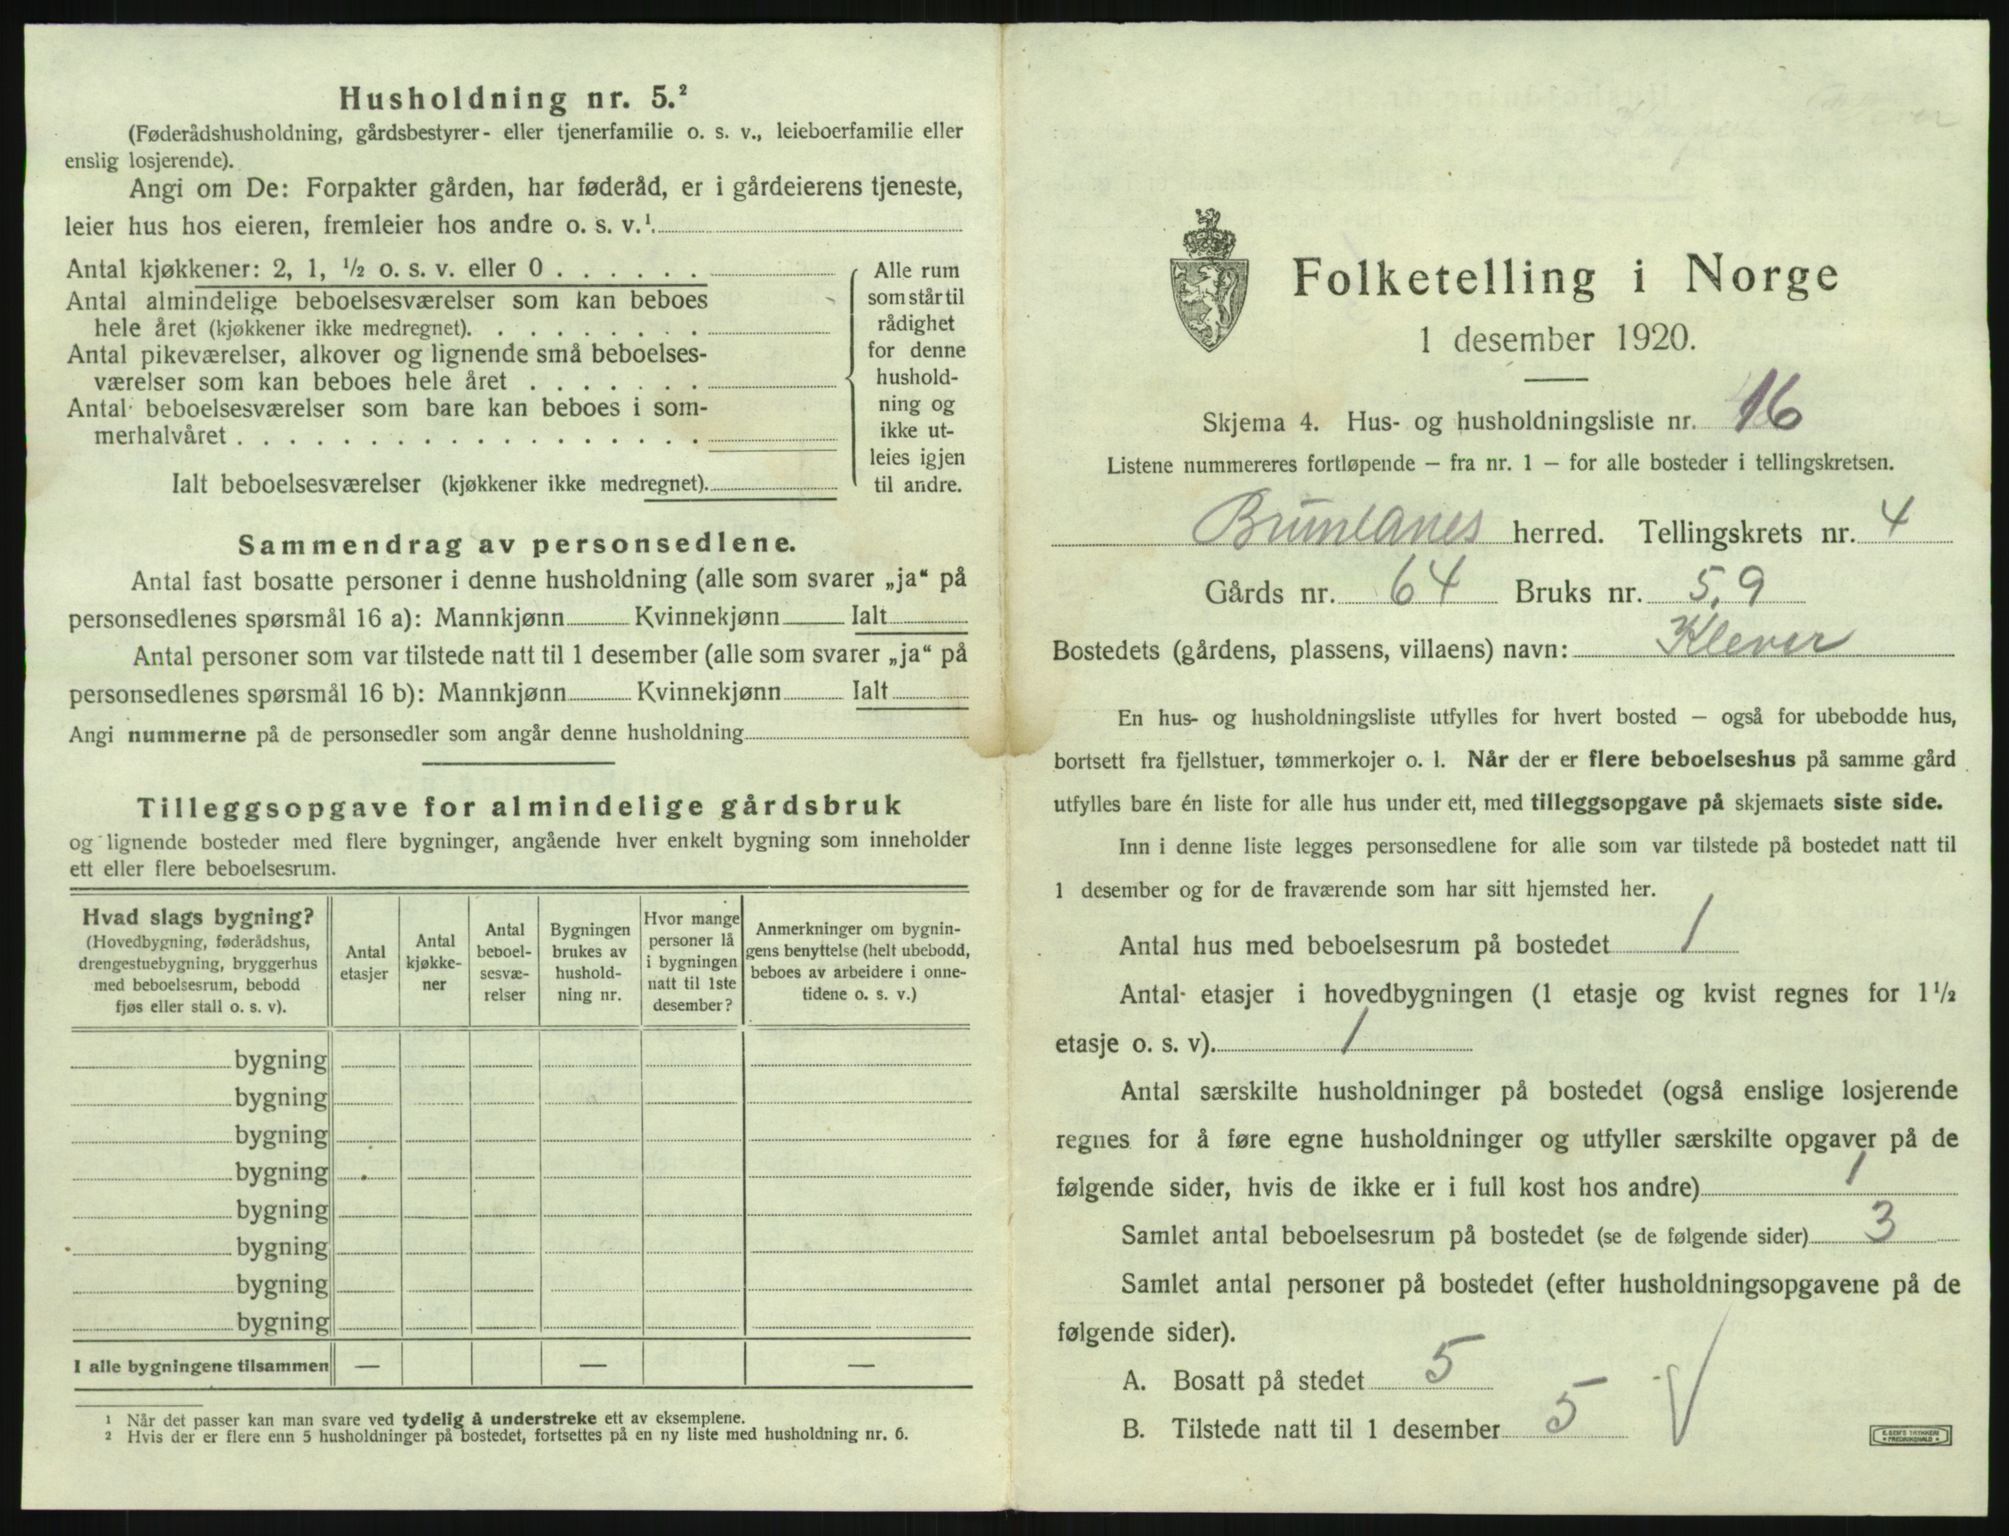 Husholdning nr. 5.²
(Føderådshusholdning, gårdsbestyrer- eller tjenerfamilie o. s. v., leieboerfamilie eller
enslig losjerende).
Angi om De: Forpakter gården, har føderåd, er i gårdeierens tjeneste,
leier hus hos eieren, fremleier hos andre o. s. v.¹
Antal kjøkkener: 2, 1, ½ o. s. v. eller 0 . . . . . .
Antal almindelige beboelsesværelser som kan beboes
hele året (kjøkkener ikke medregnet). . . . . . . . .
Antal pikeværelser, alkover og lignende små beboelses-
værelser som kan beboes hele året . . . . . . .
Antal beboelsesværelser som bare kan beboes i som-
merhalvåret . . . . . . . . . . . . . . . . . .
Ialt beboelsesværelser (kjøkkener ikke medregnet).
Alle rum
som står til
rådighet
for denne
hushold-
ning og
ikke ut-
leies igjen
til andre.
Sammendrag av personsedlene.
Antal fast bosatte personer i denne husholdning (alle som svarer „ja“ på
personsedlenes spørsmål 16 a): Mannkjønn Kvinnekjønn Ialt
Antal personer som var tilstede natt til 1 desember (alle som svarer „ja“ på
personsedlenes spørsmål 16 b): Mannkjønn Kvinnekjønn Ialt
Angi nummerne på de personsedler som angår denne husholdning
Tilleggsopgave for almindelige gårdsbruk
og lignende bosteder med flere bygninger, angående hver enkelt bygning som inneholder
ett eller flere beboelsesrum.
Hvad slags bygning?
(Hovedbygning, føderådshus,
drengestuebygning, bryggerhus
med beboelsesrum, bebodd
fjøs eller stall o. s. v).
Antal
etasjer
Antal
kjøkke-
ner
Antal
beboel-
sesvæ-
relser
Bygningen
brukes av
hushold-
ning nr.
Hvor mange
personer lå
i bygningen
natt til 1ste
desember?
Anmerkninger om bygnin-
gens benyttelse (helt ubebodd,
beboes av arbeidere i onne-
tidene o. s. v.)
bygning
bygning
bygning
bygning
bygning
bygning
bygning
bygning
I alle bygningene tilsammen — — —
1 Når det passer kan man svare ved tydelig å understreke ett av eksemplene.
2 Hvis der er flere enn 5 husholdninger på bostedet, fortsettes på en ny liste med husholdning nr. 6.
Folketelling i Norge
1 desember 1920.
Skjema 4. Hus- og husholdningsliste nr. 16
Listene nummereres fortløpende – fra nr. 1 – for alle bosteder i tellingskretsen.
Brunlanes herred. Tellingskrets nr. 4
Gårds nr. 64 Bruks nr. 5,9
Bostedets (gårdens, plassens, villaens) navn: Klever
En hus- og husholdningsliste utfylles for hvert bosted – også for ubebodde hus,
bortsett fra fjellstuer, tømmerkojer o. l. Når der er flere beboelseshus på samme gård
utfylles bare én liste for alle hus under ett, med tilleggsopgave på skjemaets siste side.
Inn i denne liste legges personsedlene for alle som var tilstede på bostedet natt til
1 desember og for de fraværende som har sitt hjemsted her.
Antal hus med beboelsesrum på bostedet 1
Antal etasjer i hovedbygningen (1 etasje og kvist regnes for 1½
etasje o. s. v). 1
Antal særskilte husholdninger på bostedet (også enslige losjerende
regnes for å føre egne husholdninger og utfyller særskilte opgaver på de
følgende sider, hvis de ikke er i full kost hos andre) 1
Samlet antal beboelsesrum på bostedet (se de følgende sider) 3
Samlet antal personer på bostedet (efter husholdningsopgavene på de
følgende sider).
A. Bosatt på stedet 5
B. Tilstede natt til 1 desember 5